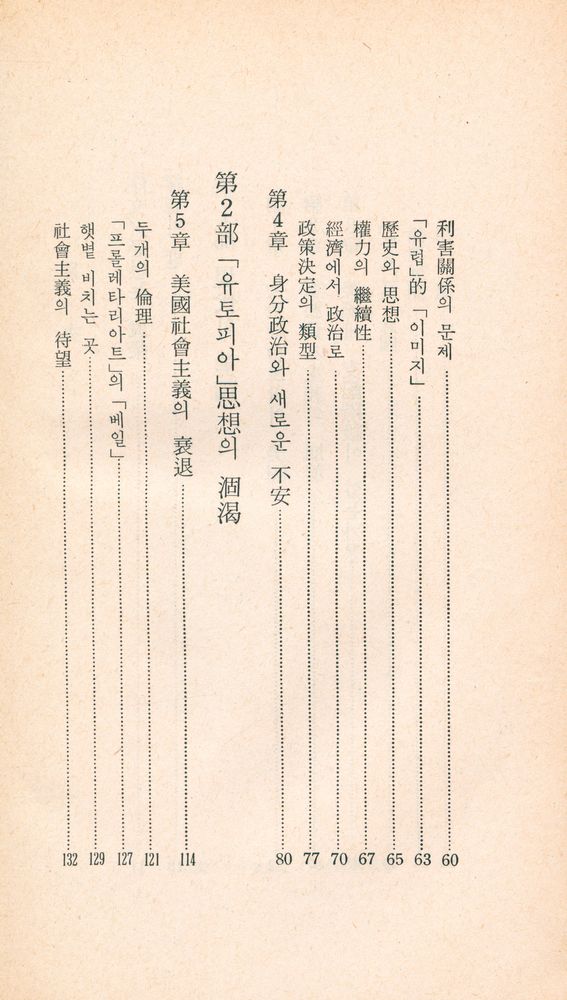 利害關係의 문제 60
「유럽」的 「이미지」 63
歷史와 思想 65
權力의 繼續性 67
經濟에서 政治로 70
政策決定의 類型 77
第4章 身分政治와 새로운 不安 80
第2部 「유토피아」思想의 涸渴
第5章 美國社會主義의 衰退 114
두개의 倫理 121
「프롤레타리아트」의 「베일」 127
햇볕 비치는 곳 129
社會主義의 待望 132